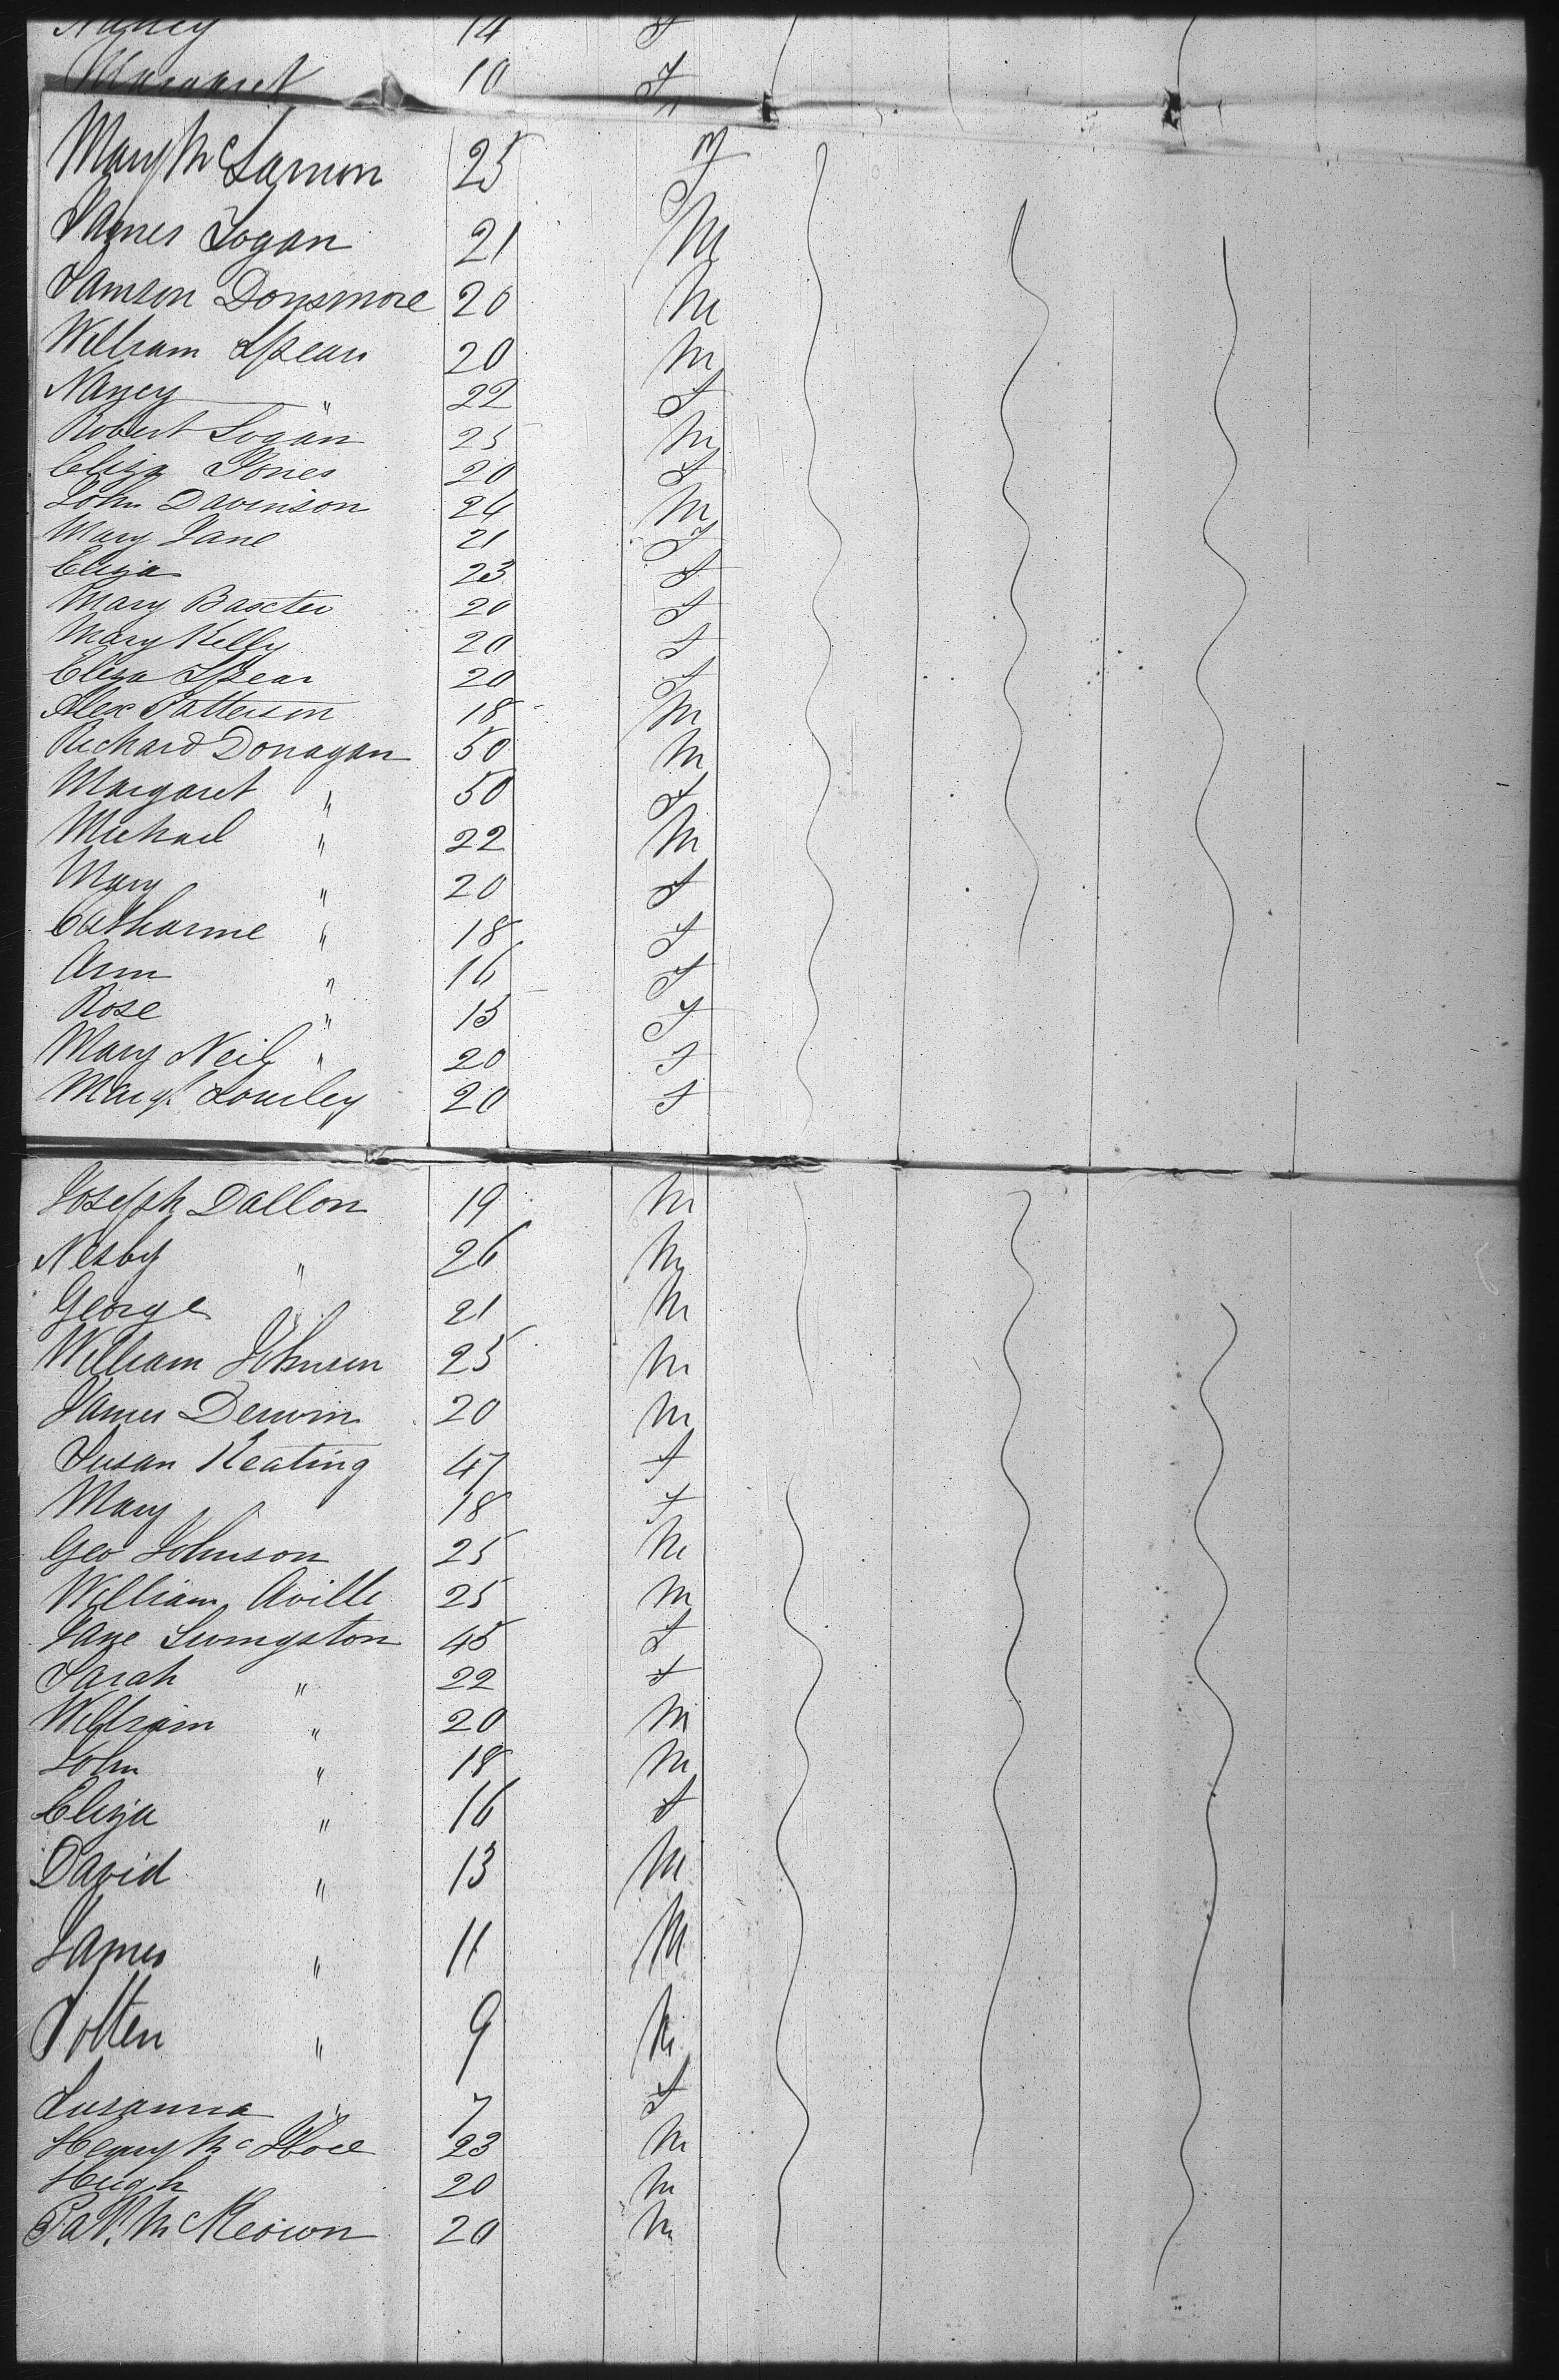 Nancy 14 F
Margaret 10 F
Mary McLarnon 25
James Logan 21 M
Samson Donsmore 20 M
William Spear 20 M
Nancy " 22 F
Robert Logan 25 M
Eliza Jones 20 F
John Davinson 24 M
Mary Jane 21 F
Eliza 23 F
Mary Baxter 20 F
Mary Kelly 20 F
Eliza Spear 20 F
Alex Patterson 18 M
Richard Donagan 50 M
Margaret " 50 F
Michael " 22 M
Mary " 20 F
Catharine " 18 F
Ann " 16 F
Rose " 13 F
Mary Neil " 20 F
Margt. 20 F
Joseph Dallon 19 M
Nesby " 26 M
George " 21 M
William Johnson 25 M
James Derwin 20 M
Susan Keating 47 F
Mary 18 F
Geo Johnson 25 M
William Aville 25 M
Jane Livingston 45 F
Sarah " 22 F
William " 20 M
John " 18 M
Eliza " 16 F
David " 13 M
James " 11 M
Totten " 9 M
Susanna " 7 F
Henry 23 M
Hugh 20 M
Pat. McKeown 20 M